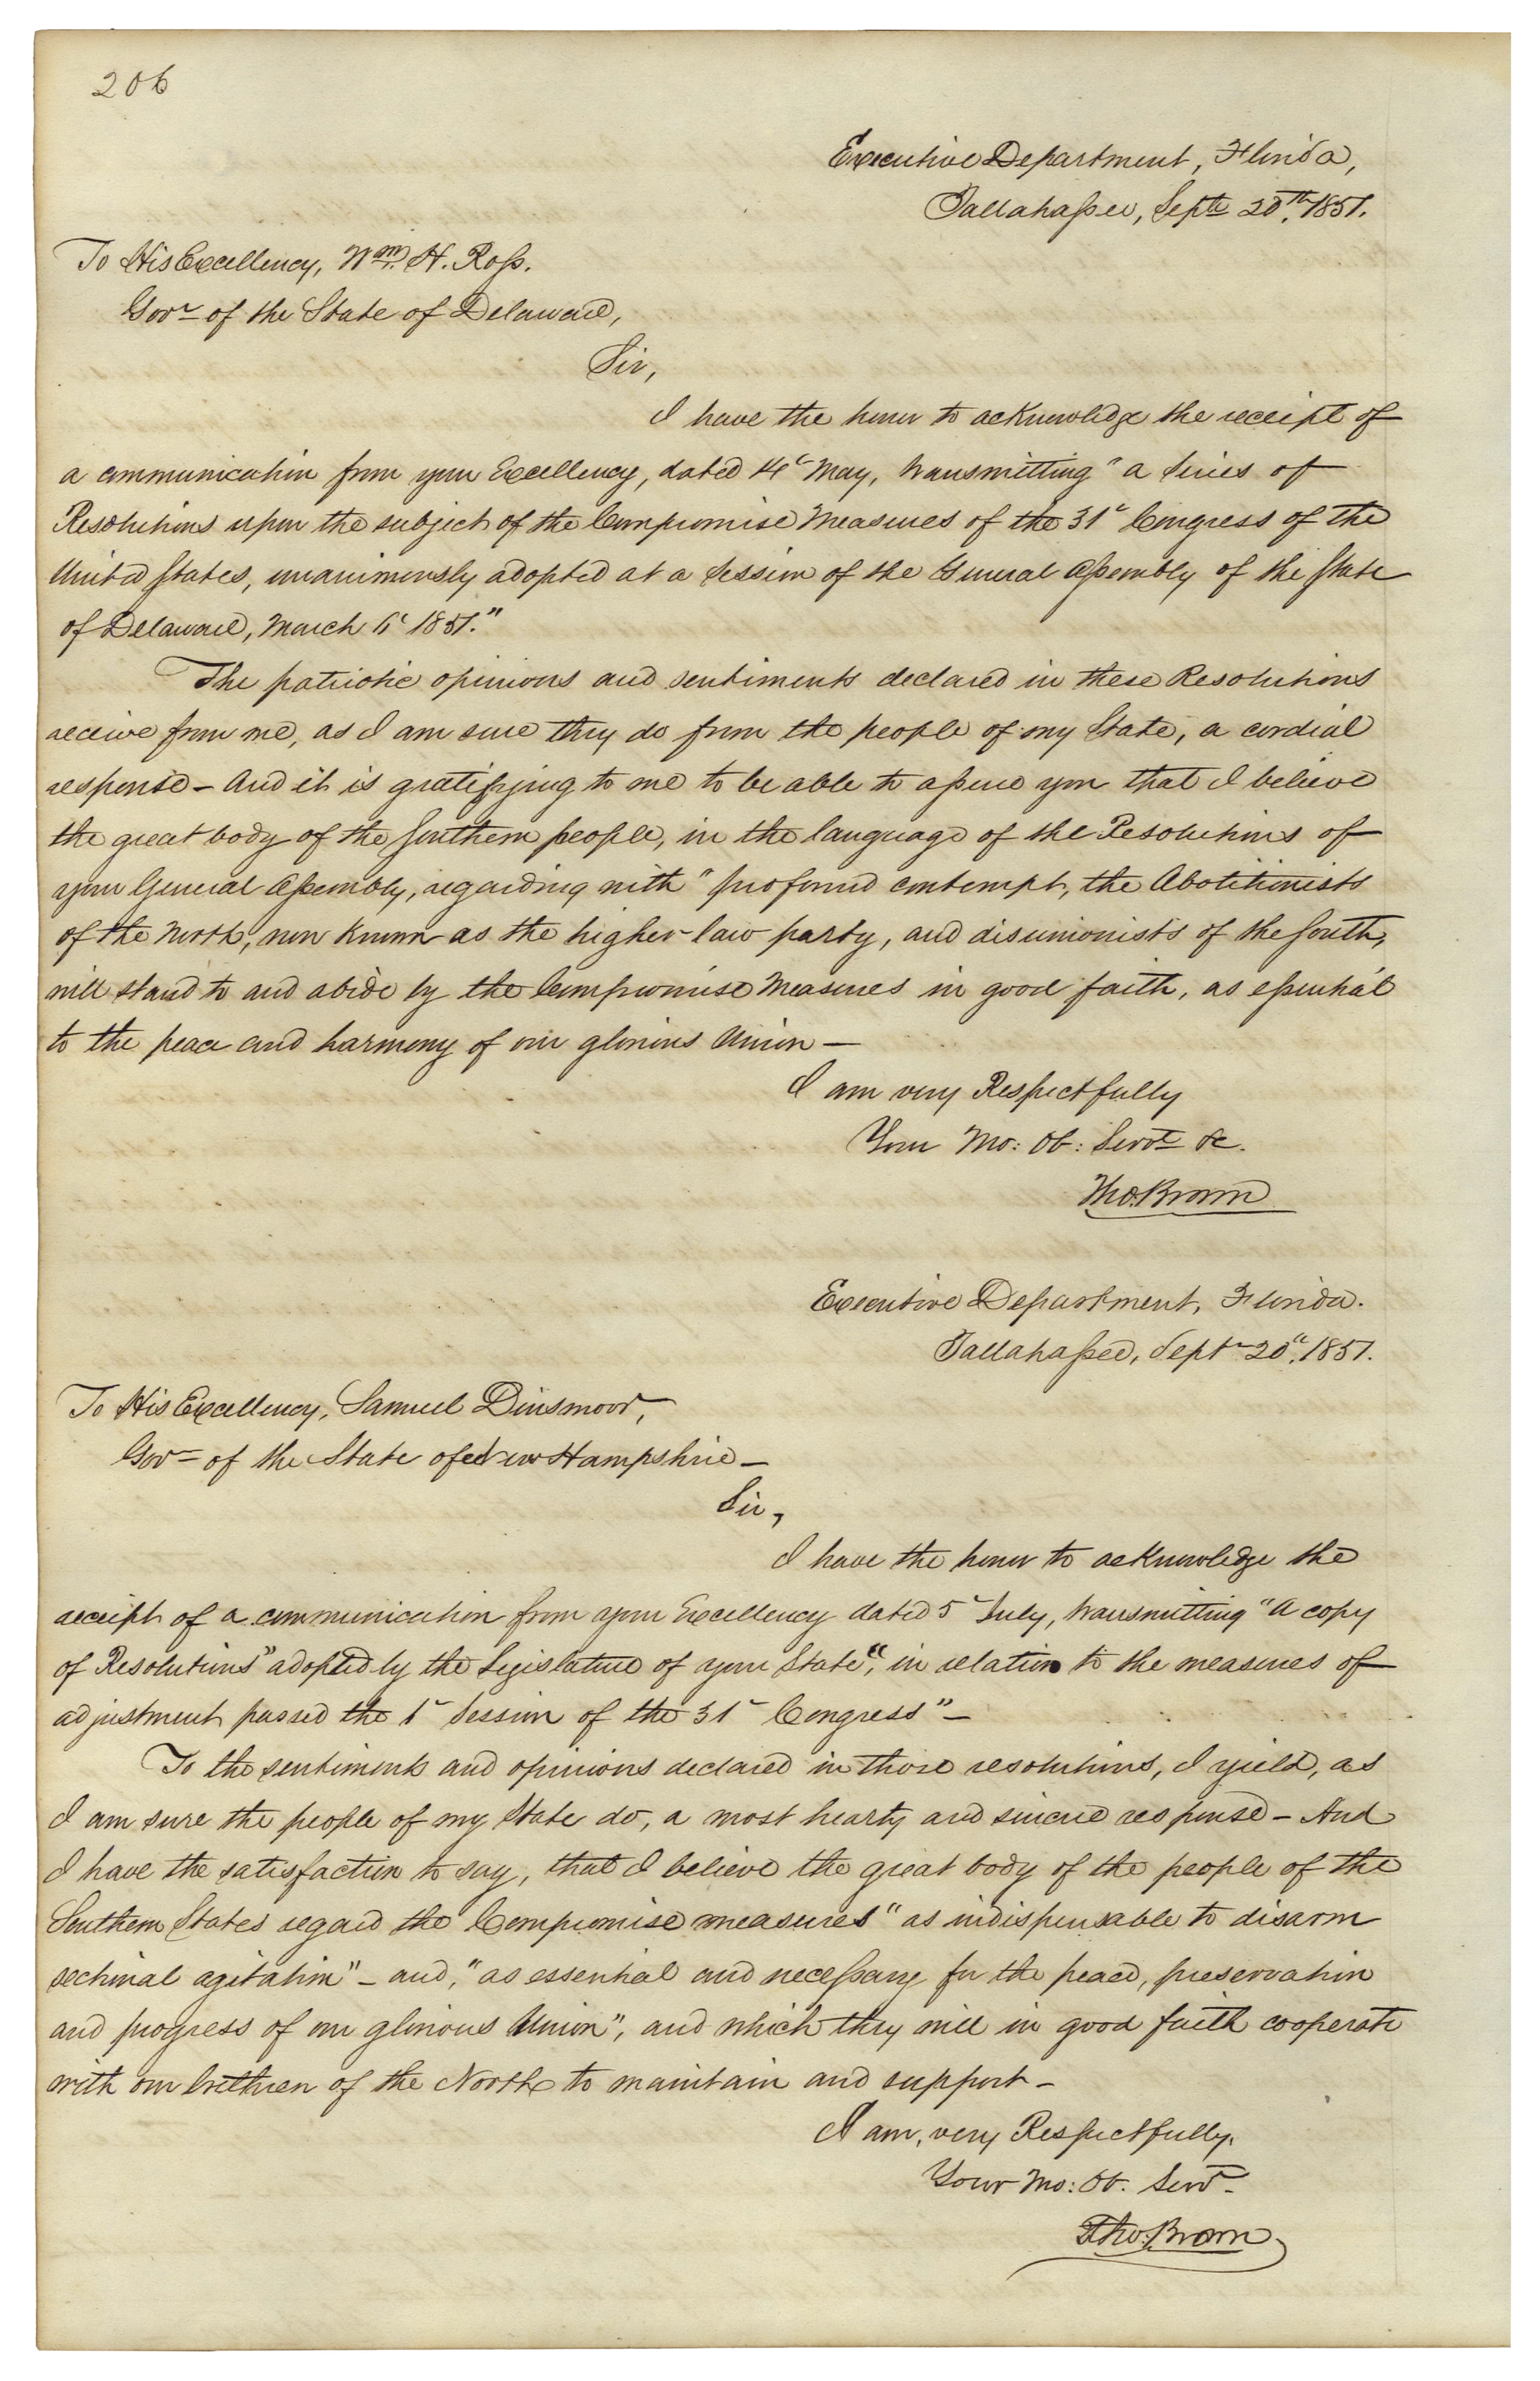 206
Executive Department, Florida,
Tallahassee, Septr 20th, 1851.
To His Excellency, Wm. H. Ross.
Govr of the State of Delaware,
Sir,
I have the honor to acknowledge the receipt of
a communication from your Excellency, dated 14t May, transmitting "a Series of
Resolutions upon the subject of the Compromise Measures of the 31t Congress of the
United States, unanimously adopted at a Session of the General Assembly of the State
of Delaware, March 1851."
The patriotic opinions and sentiments declared in these Resolutions
receive from me, as I am sure they do from the people of my State, a cordial
response – And it is gratifying to me to be able to assure you that I believe
the great body of the Southern people, in the language of the Resolutions of
your General Assembly, regarding with "profound contempt, the Abolitionists
of the North, now known as the higher law party, and disunionists of the South,
will stand to and abide by the Compromise Measures in good faith, as essential
to the peace and harmony of our glorious Union –
I am very Respectfully
Your Mo: Ob: Servt &c.
Tho. Brown
Executive Department, Florida.
Tallahassee, Septr 20t, 1851.
To His Excellency, Samuel Dinsmoor,
Govr of the State of New Hampshire –
Sir,
I have the honor to acknowledge the
receipt of a communication from your Excellency dated 5t July, transmitting "A copy
of Resolutions" adopted by the Legislature of your State", in relation to the measures of
adjustment passed the 1t Session of the 31t Congress" –
To the sentiments and opinions declared in those resolutions, I yield, as
I am sure the people of my State do, a most hearty and sincere response – And
I have the satisfaction to say, that I believe the great body of the people of the
Southern States regard the Compromise measures "as indispensable to disarm
sectional agitation" – and, "as essential and necessary for the peace, preservation
and progress of our glorious Union", and which they will in good faith cooperate
with our brethren of the North to maintain and support –
I am, very Respectfully,
Your Mo: Ob. Servt
Tho. Brown